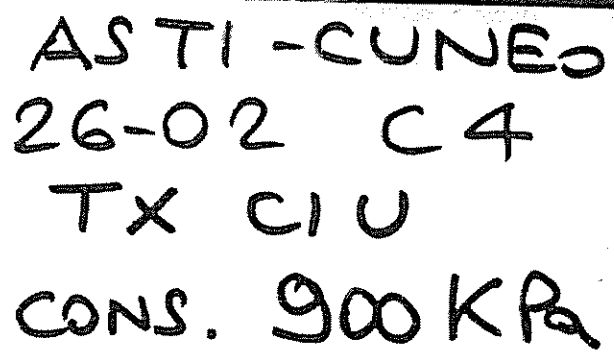 ASTI-CUNEO
26-02 C4
TX CIU
CONS. 900 KPa